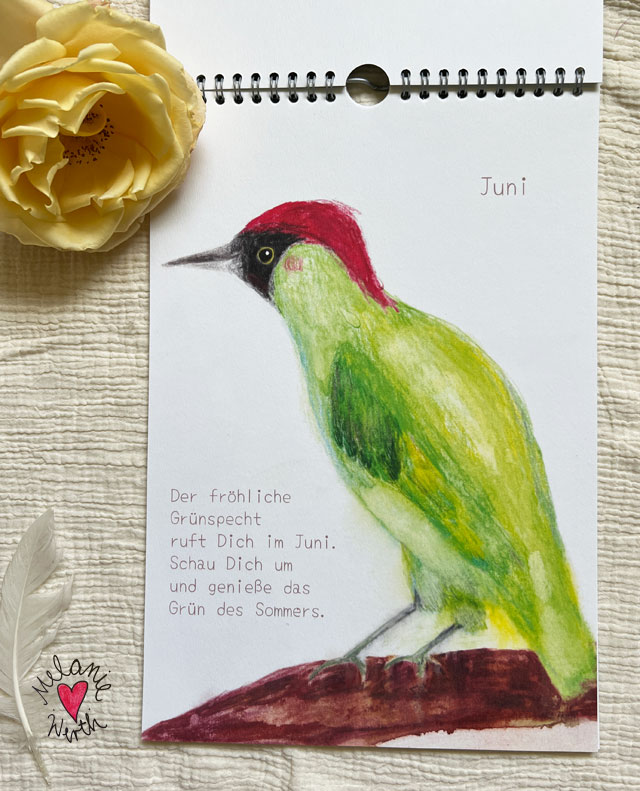 Juni
Der fröhliche
Grünspecht
ruft Dich im Juni.
Schau Dich um
und genieße das
Grün des Sommers.
Melanie
Wirth